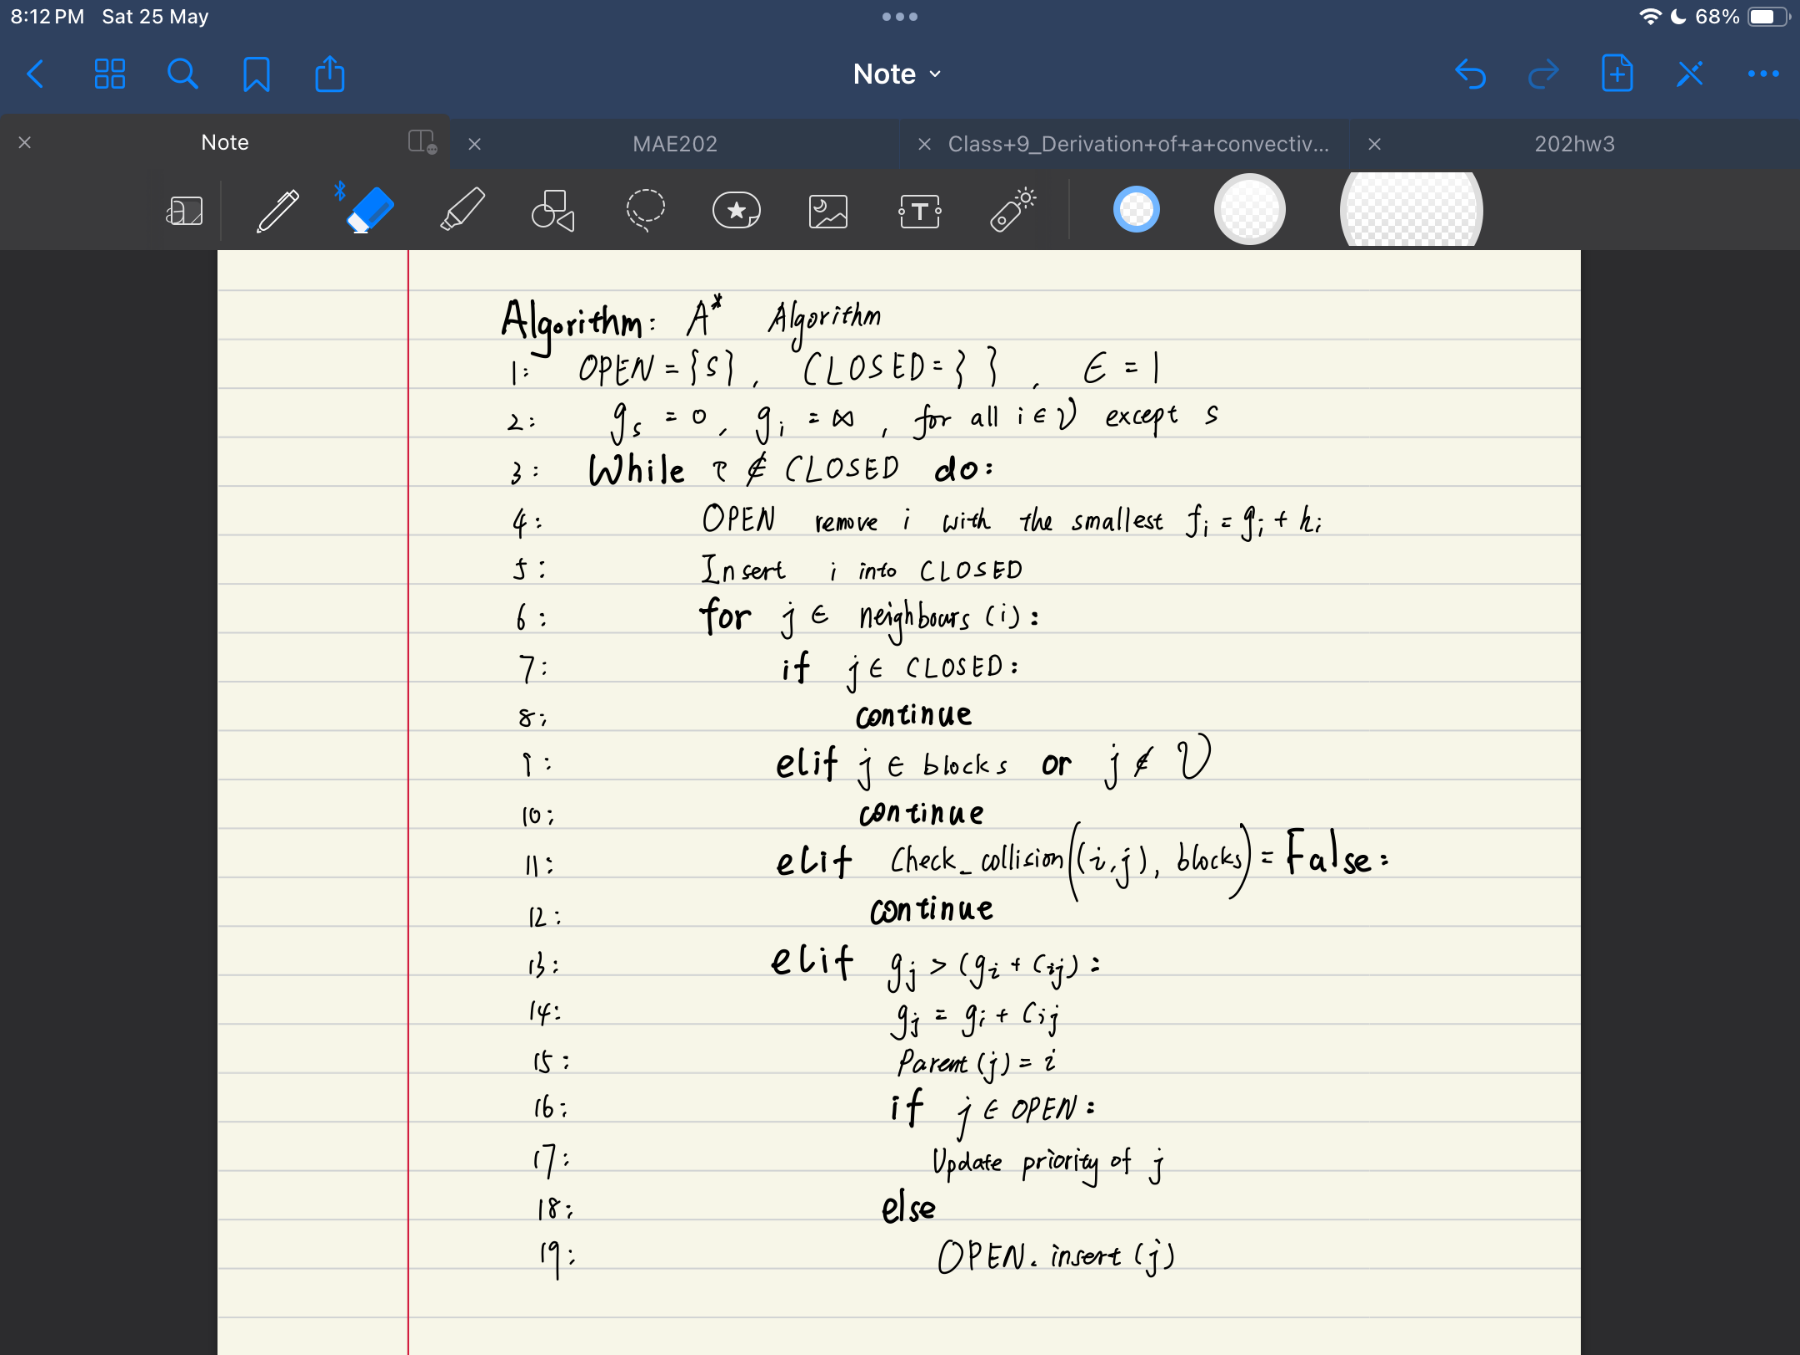 8:12 PM Sat 25 May
68%
Note
Note
MAE202
Class+9_Derivation+of+a+convectiv...
202hw3
Algorithm: A* Algorithm
1: OPEN = {s}, CLOSED = { }, ϵ = 1
2: g_s = 0, g_i = ∞, for all i ∈ V except s
3: While τ ∉ CLOSED do:
4: OPEN remove i with the smallest f_i = g_i + h_i
5: Insert i into CLOSED
6: for j ∈ neighbours (i):
7: if j ∈ CLOSED:
8: continue
9: elif j ∈ blocks or j ∉ V
10: continue
11: elif Check_collision((i,j), blocks) = False:
12: continue
13: elif g_j > (g_i + C_ij):
14: g_j = g_i + C_ij
15: Parent (j) = i
16: if j ∈ OPEN:
17: Update priority of j
18: else
19: OPEN. insert (j)